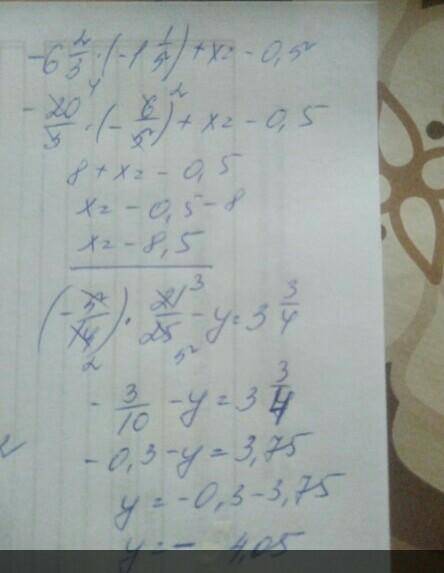 -6 2/3 · (-1 1/5) + x = -0,5
-20/3 · (-6/5) + x = -0,5 4 2
8 + x = -0,5
x = -0,5 - 8
x = -8,5
(-5/14) · 21/25 - y = 3 3/4 3 2 5
-3/10 - y = 3 3/4
-0,3 - y = 3,75
y = -0,3 - 3,75
y = - 4,05